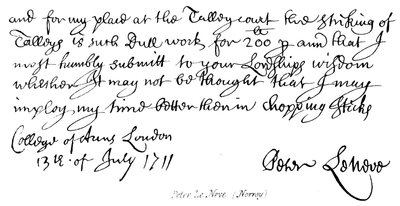 and for my place at the Talley court the striking of
Talleys is such Dull work for 200 li p ann that I
most humbly submitt to your Lordships wisdom
whether It may not be thought that I may
imploy my time better then in chopping sticks
Colledge of Arms London
13th. of July 1711
Peter Leneve
Peter Le Neve (Norroy)